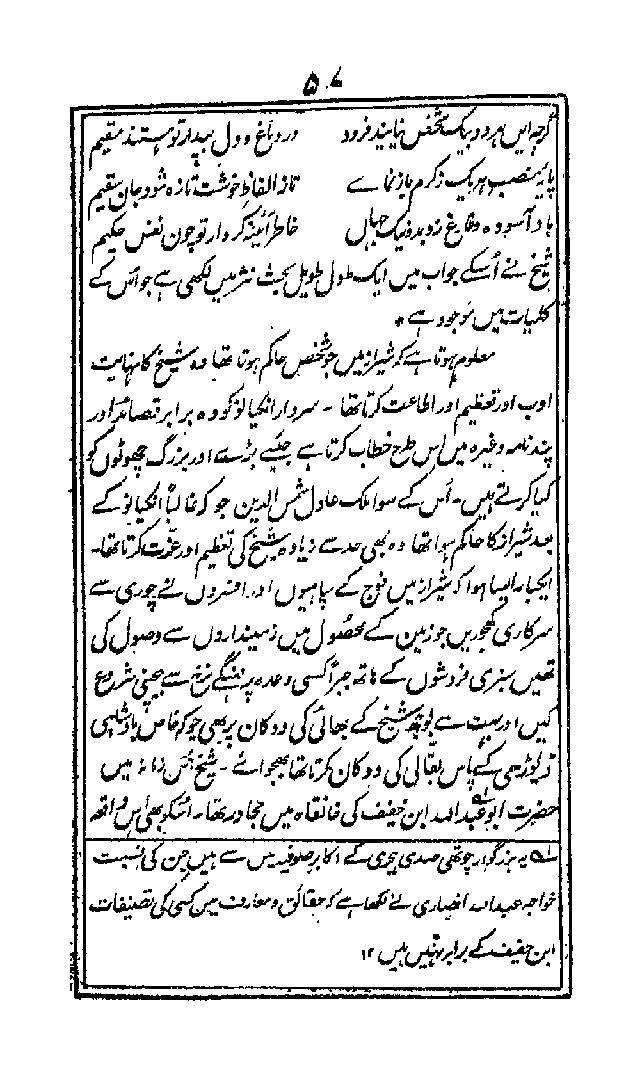 ۵۷
گرچہ این ہر دو بیک شخص نیایند فرود در دماغ و دل بیدار تو ہستند مقیم
پایۂ منصب ہر یک ز کرم باز نماے تا ز الفاظ خوشت تازہ شود جان سقیم
باد آسودہ و فارغ ز بد و نیک جہاں خاطر آئینہ کردار تو چون نفس حکیم
شیخ نے اُسکے جواب میں ایک طول طویل بحث نثر میں لکھی ہے جو اُس کے
کلیات میں موجود ہے *
معلوم ہوتا ہے کہ شیراز میں جو شخص حاکم ہوتا تھا وہ شیخ کا نہایت
ادب اور تعظیم اور اطاعت کرتا تھا ۔ سردار انکیانو کو وہ برابر قصائد اور
پند نامہ وغیرہ میں اس طرح خطاب کرتا ہے جیسے بڑے اور بزرگ چھوٹوں کو
کیا کرتے ہیں ۔ اُس کے سوا ملک عادل شمس الدین جو کہ غالباً انکیانو کے
بعد شیراز کا حاکم ہوا تھا وہ بھی حد سے زیادہ شیخ کی تعظیم اور عزت کرتا تھا۔
ایکبار ایسا ہوا کہ شیراز میں فوج کے سپاہیوں اور افسروں نے چوری سے
سرکاری کھجوریں جو زمین کے محصول میں زمینداروں سے وصول کی
تھیں سبزی فروشوں کے ہاتھ جبراً کسی وعدہ پر مہنگے نرخ سے بیچنی شروع
کیں اور بہت سے بوجھ شیخ کے بھائی کی دوکان پر بھی جو کہ خاص بادشاہی
ڈیوڑھی کے پاس بقالی کی دوکان کرتا تھا بھجوائے ۔ شیخ اُس زمانہ میں
حضرت ابو عبد اللہ ابن خفیف کی خانقاہ میں مجاور تھا ۔ اُسکو بھی اس واقعہ
لہ یہ بزرگوار چوتھی صدی ہجری کے اکابر صوفیہ میں سے ہیں جن کی نسبت
خواجہ عبد اللہ انصاری نے لکھا ہے کہ حقائق و معارف میں کسی کی تصنیفات
ابن خفیف کے برابر نہیں ہیں ۱۲